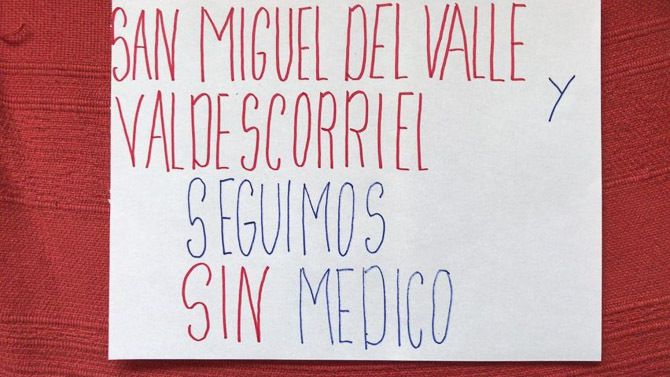 SAN MIGUEL DEL VALLE Y
VALDESCORRIEL
SEGUIMOS
SIN MEDICO